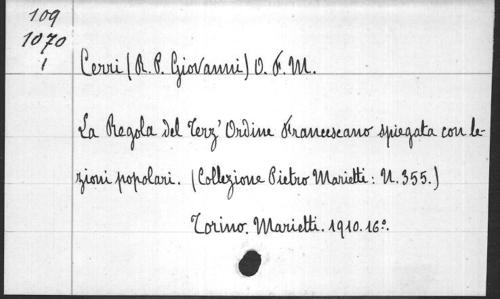 109
1070
1
Cerri (R. P. Giovanni) O. F. M.
La Regola del Terz' Ordine Francescano spiegata con le-
zioni popolari. (Collezione Pietro Marietti: N. 355.)
Torino. Marietti. 1910. 16º.